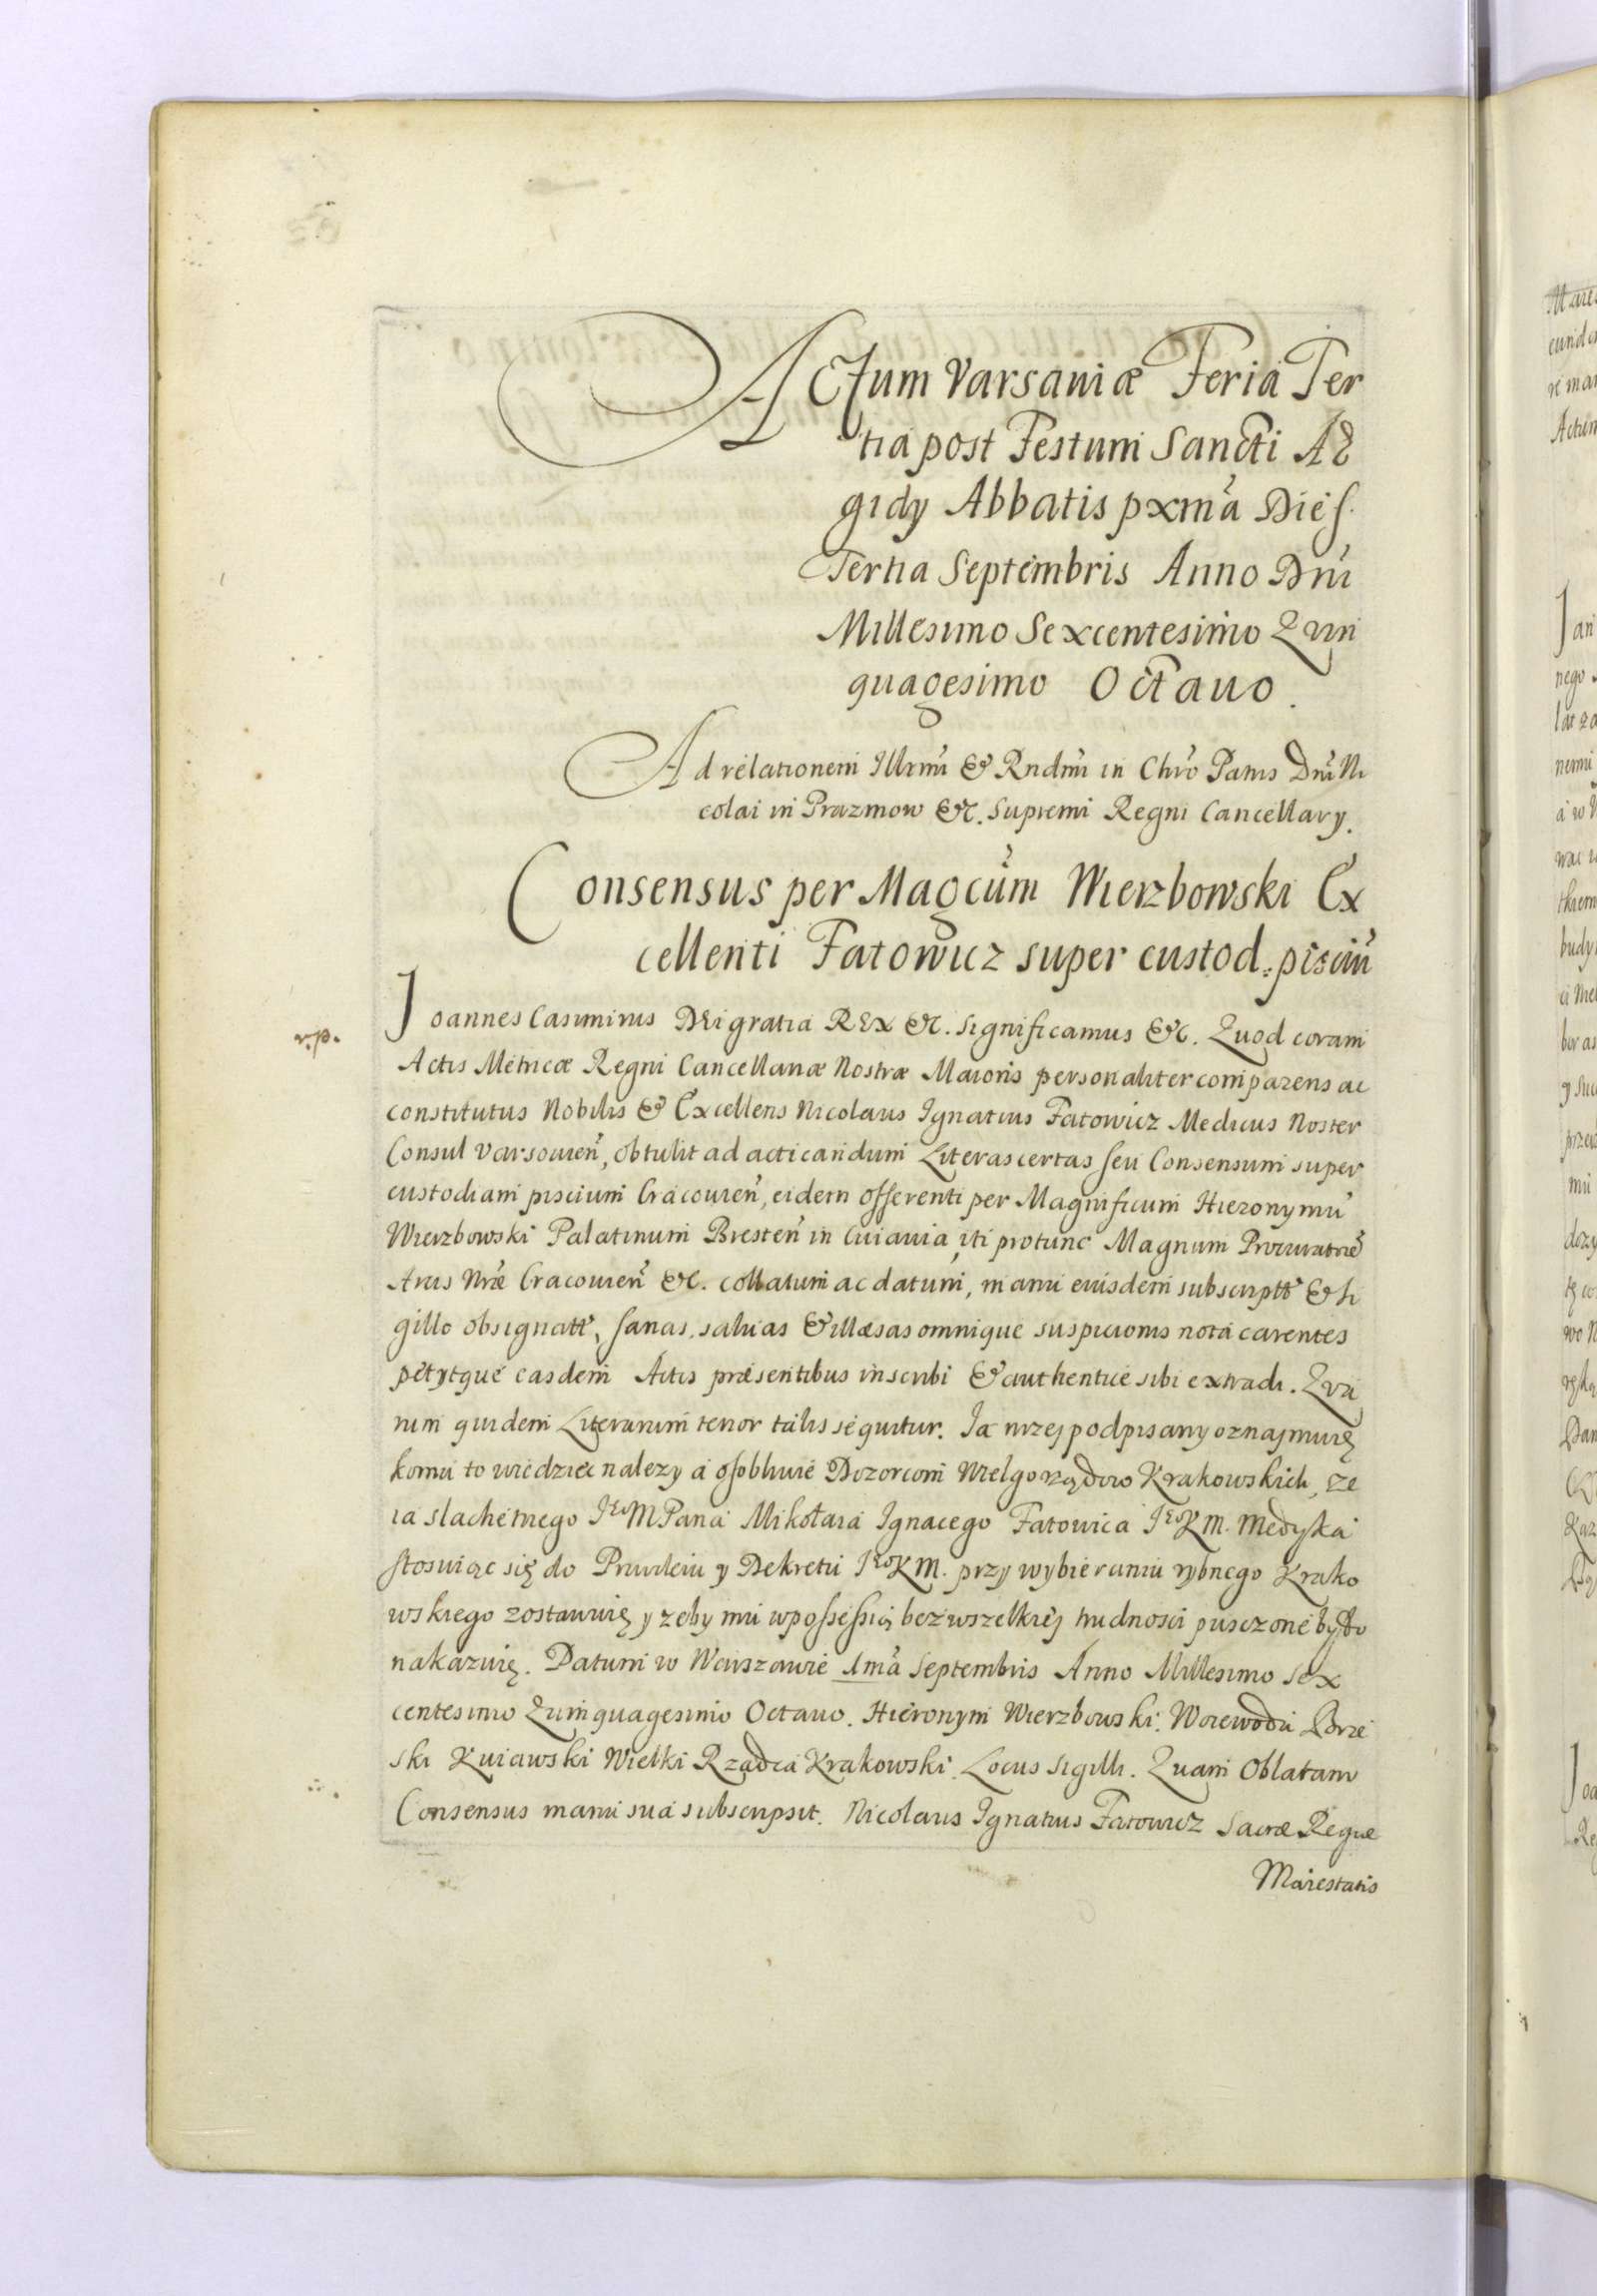 Actum Varsaviæ Feria Ter
tia post Festum Sancti Æ
gidy Abbatis pxmã Dies
Tertia Septembris Anno Dni
Millesimo Sexcentesimo Quin
quagesimo Octauo.
Ad relationem Illrmi & Rndmi in Chro Patris Dni Ni
colai in Prazmow &c. Supremi Regni Cancellary.
Consensus per Magcum Wierzbowski Ex
cellenti Fatowicz super custod: pisciu
Joannes Casimirus Dei gratia Rex &c. Significamus &c. Quod coram
r.p.
Actis Metricæ Regni Cancellariæ Nostræ Maioris personaliter comparens ac
constitutus Nobilis & Excellens Nicolaus Ignatius Fatowicz Medicus Noster
Consul Varsouien, obtulit ad acticandum Literas certas seu Consensum super
custodiam piscium Cracouien, eidem offerenti per Magnificum Hieronymu
Wierzbowski Palatinum Bresten in Cuiauia, uti protunc Magnum Procuratore
Arcis Nræ Cracouien &c. collatum ac datum, manu eiusdem subscriptt & si
gillo obsignatt, sanas, saluas & illæsas omnique suspicionis nota carentes
petytque easdem Actis præsentibus inscribi & authentice sibi extradi. Qua
rum quidem Literarum tenor talis sequitur. Ja nizej podpisany oznajmuię
komu to wiedziec nalezy a osobliwie Dozorcom Wielgorządow Krakowskich, ze
ia slachetnego JeoM Pana Mikołaia Ignacego Fatowica JeoKM. Medyka
stosuiąc się do Priuileiu y Dekretu JeoKM. przy wybieraniu rybnego Krako
wskiego zostawuię y zeby mu wpossessią bez wszelkiej trudnosci pusczone było
nakazuię. Datum w Warszawie 1ma Septembris Anno Millesimo Sex
centesimo Quinquagesimo Octauo. Hieronym Wierzbowski. Woiewoda Brze
ski Kuiawski Wielki Rządca Krakowski. Locus Sigilli. Quam Oblatam
Consensus manu sua subscripsit. Nicolaus Ignatius Fatowicz Sacræ Regiæ
Maiestatis